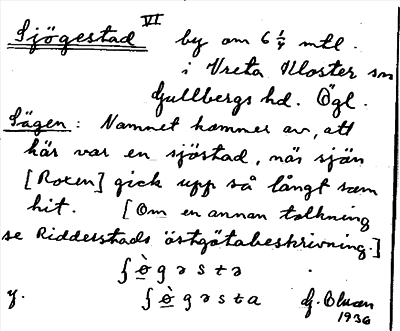 Sjögestad VI by om 6 1/4 mtl.
i Vreta Kloster sn
Gullbergs hd. Ögl.
Sägen: Namnet kommer av, att
här var en sjöstad, när sjön
[Roxen] gick upp så långt som
hit. [Om en annan tolkning
se Ridderstads östgötabeskrivning.]
ʃ ò̲ g ə s t ə
y. ʃ ò̲ g ə s t a G. Olsson
1936